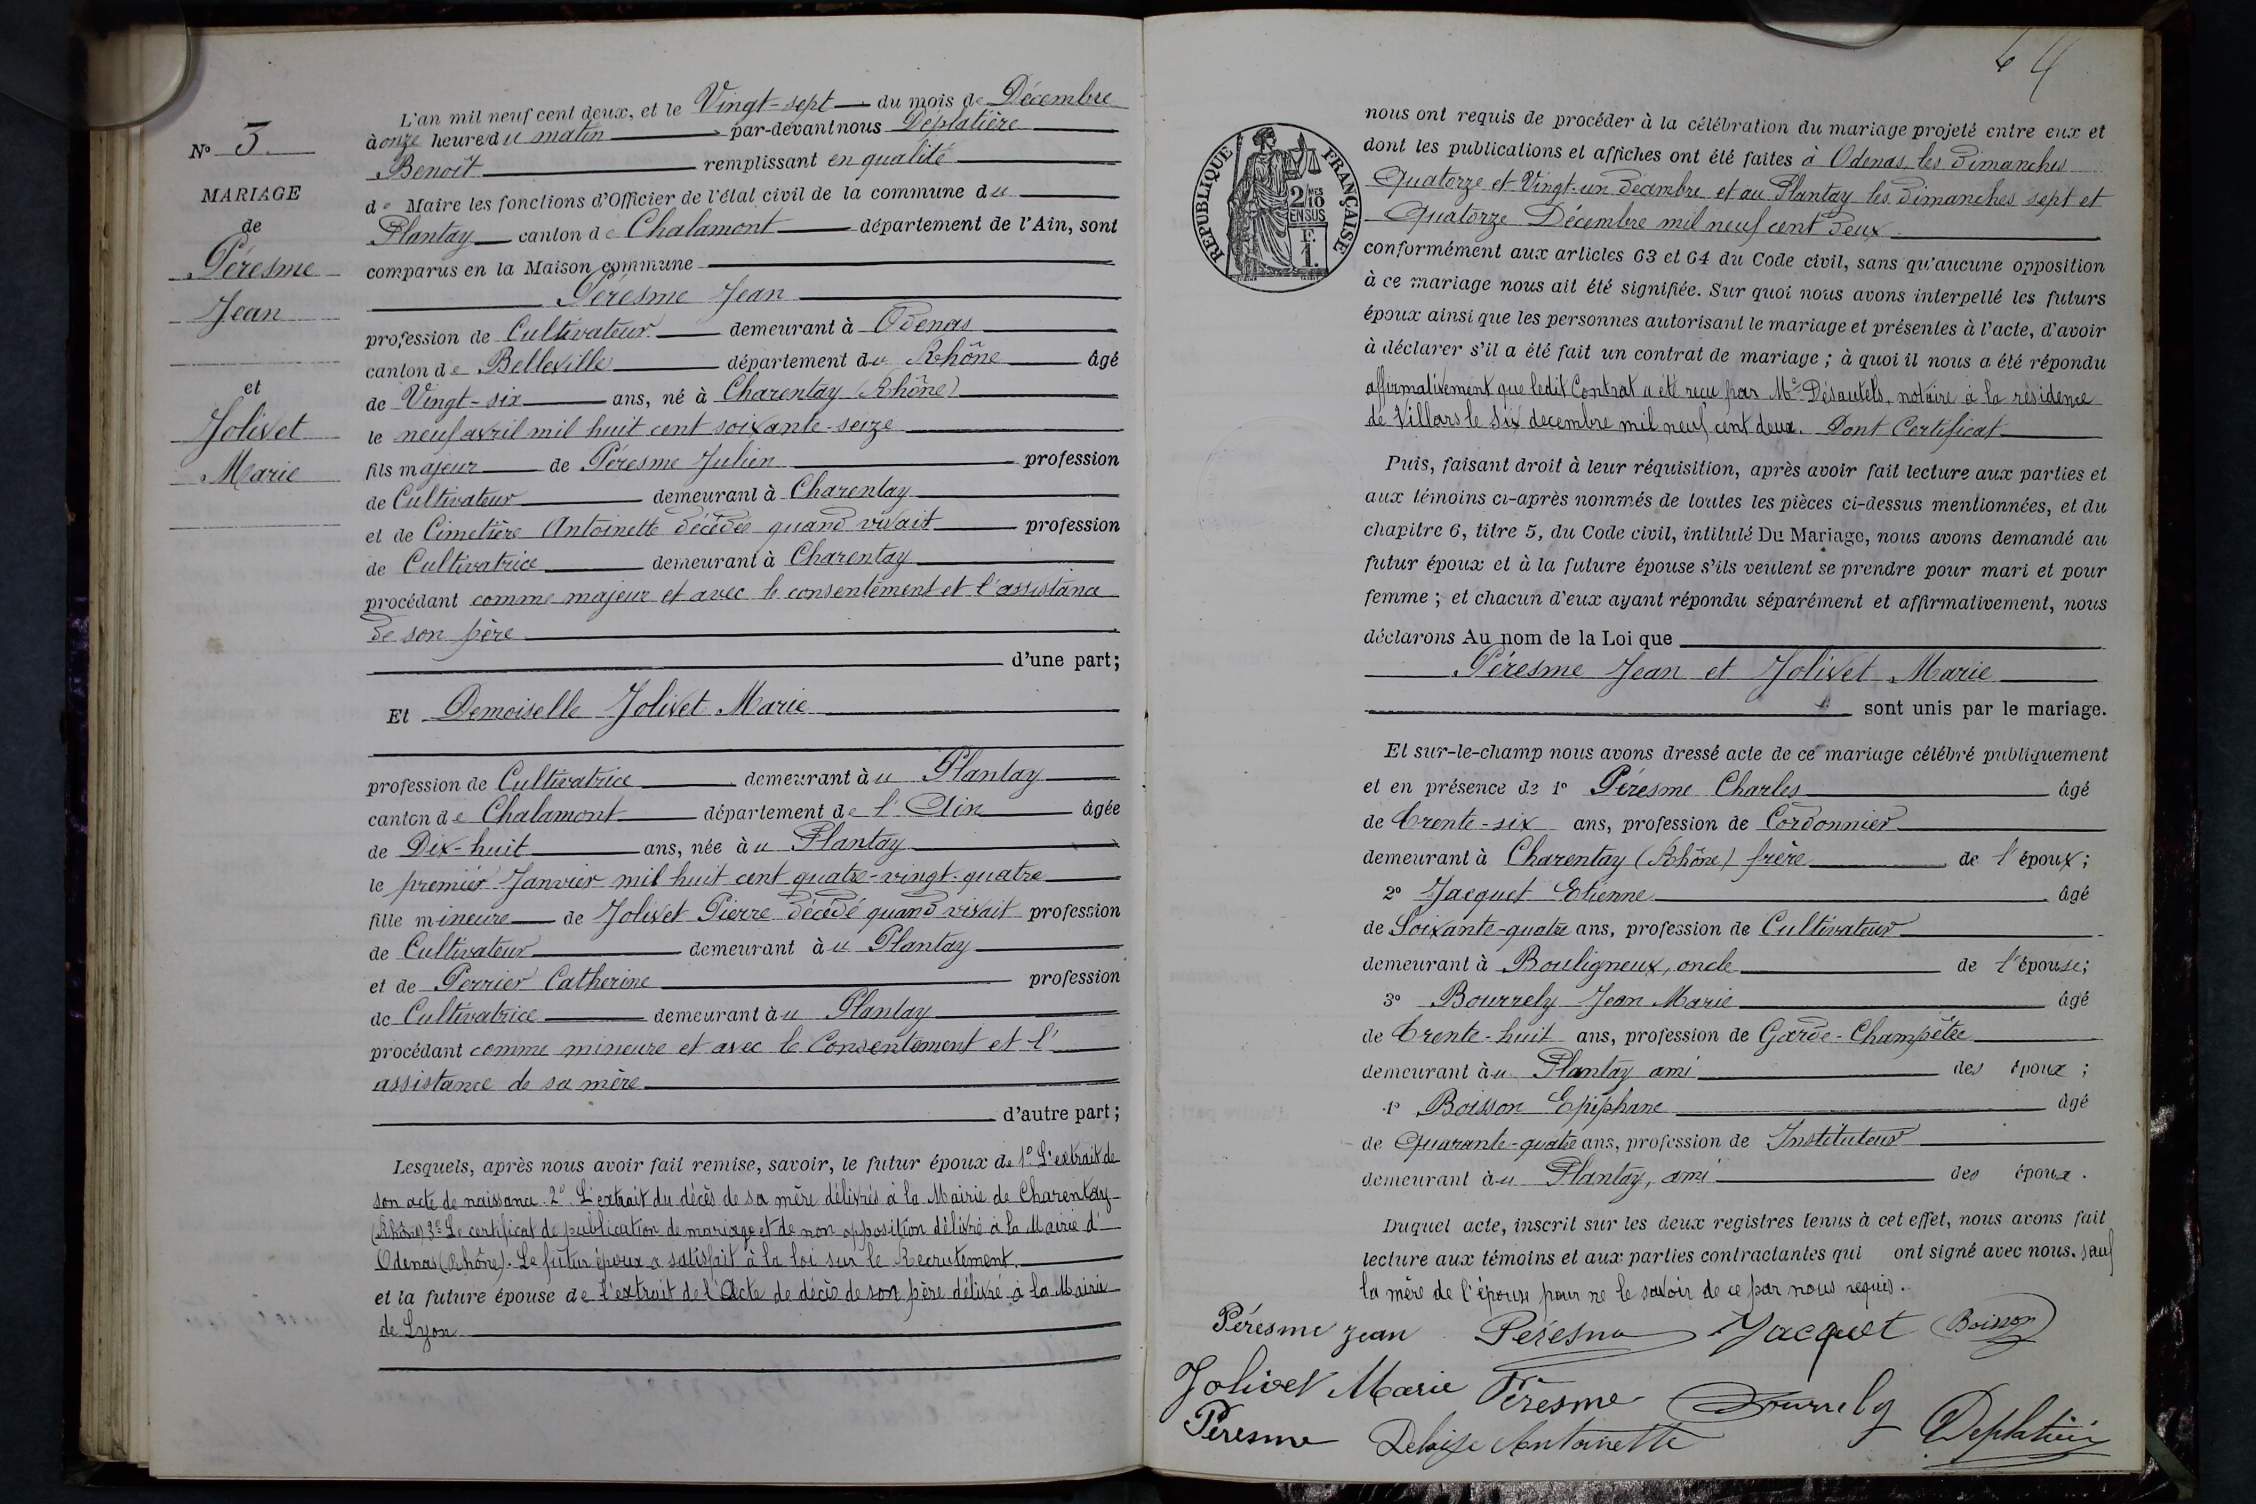 L'an mil neuf cent deux, et le Vingt-sept du mois de Décembre
à onze heure du matin par-devant nous Déplatière
Benoît remplissant en qualité
de Maire les fonctions d'Officier de l'état civil de la commune du
Plantay canton de Chalamont département de l'Ain, sont
comparus en la Maison commune
Péresme Jean
profession de Cultivateur demeurant à Odenas
canton de Belleville département du Rhône âgé
de Vingt-six ans, né à Charentay (Rhône)
le neuf avril mil huit cent soixante-seize
fils majeur de Péresme Julien profession
de Cultivateur demeurant à Charentay
et de Cimetière Antoinette décédée quand vivait profession
de Cultivatrice demeurant à Charentay
procédant comme majeur et avec le consentement et l'assistance
de son père
d'une part;
Et Demoiselle Jolivet Marie
profession de Cultivatrice demeurant àu Plantay
canton de Chalamont département de l'Ain âgée
de Dix-huit ans, née àu Plantay
le premier Janvier mil huit cent quatre-vingt-quatre
fille mineure de Jolivet Pierre décédé quand vivait profession
de Cultivateur demeurant àu Plantay
et de Perrier Catherine profession
de Cultivatrice demeurant àu Plantay
procédant comme mineure et avec le Consentement et l'
assistance de sa mère
d'autre part;
Lesquels, après nous avoir fait remise, savoir, le futur époux de 1° L'extrait de
son acte de naissance. 2° L'extrait du décès de sa mère délivrés à la Mairie de Charentay
(Rhône) 3° Le certificat de publication de mariage et de non opposition délivré à la Mairie d'
Odenas (Rhône). Le futur époux a satisfait à la loi sur le Recrutement.
et la future épouse de l'extrait de l'Acte de décès de son père délivré à la Mairie
de Lyon
N° 3
MARIAGE
de
Péresme
Jean
et
Jolivet
Marie
64
RÉPUBLIQUE FRANÇAISE
2/10 MES
EN SUS
F.
1.
nous ont requis de procéder à la célébration du mariage projeté entre eux et
dont les publications et affiches ont été faites à Odenas, les Dimanches
Quatorze et Vingt-un Décembre et au Plantay les Dimanches sept et
Quatorze Décembre mil neuf cent Deux
conformément aux articles 63 et 64 du Code civil, sans qu'aucune opposition
à ce mariage nous ait été signifiée. Sur quoi nous avons interpellé les futurs
époux ainsi que les personnes autorisant le mariage et présentes à l'acte, d'avoir
à déclarer s'il a été fait un contrat de mariage; à quoi il nous a été répondu
affirmativement que ledit Contrat a été reçu par Me Désautels, notaire à la résidence
de Villars le Six decembre mil neuf cent deux. Dont Certificat
Puis, faisant droit à leur réquisition, après avoir fait lecture aux parties et
aux témoins ci-après nommés de toutes les pièces ci-dessus mentionnées, et du
chapitre 6, titre 5, du Code civil, intitulé Du Mariage, nous avons demandé au
futur époux et à la future épouse s'ils veulent se prendre pour mari et pour
femme; et chacun d'eux ayant répondu séparément et affirmativement, nous
déclarons Au nom de la Loi que
Péresme Jean et Jolivet Marie
sont unis par le mariage.
Et sur-le-champ nous avons dressé acte de ce mariage célébré publiquement
et en présence de 1° Péresme Charles âgé
de trente-six ans, profession de Cordonnier
demeurant à Charentay (Rhône) frère de l'époux;
2° Jacquet Etienne âgé
de Soixante-quatre ans, profession de Cultivateur
demeurant à Bouligneux, oncle de l'épouse;
3° Bourrely Jean Marie âgé
de trente-huit ans, profession de Garde-Champêtre
demeurant àu Plantay ami des époux;
4° Boisson Epiphane âgé
de Quarante-quatre ans, profession de Instituteur
demeurant àu Plantay, ami des époux.
Duquel acte, inscrit sur les deux registres tenus à cet effet, nous avons fait
lecture aux témoins et aux parties contractantes qui ont signé avec nous. sauf
la mère de l'épouse pour ne le savoir de ce par nous requis.
Péresme Jean Péresme Jacquet Boisson
Jolivet Marie Péresme Bourrely
Péresme Antoinette Déplatière